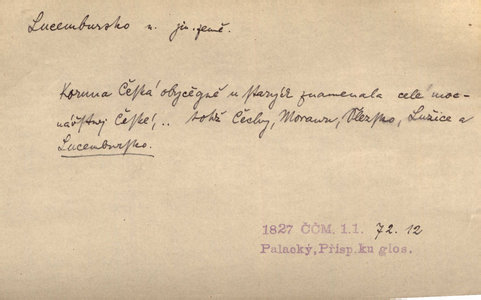 Lucembursko n. jin. země.
Koruna Česká obyčegně u starých znamenala celé moc-
nářstwj České, .. totiž Čechy, Morawu, Slezsko, Lužice a
Lucembursko.
1827 ČČM. 1.1. 72.12
Palacký, Přísp. ku glos.